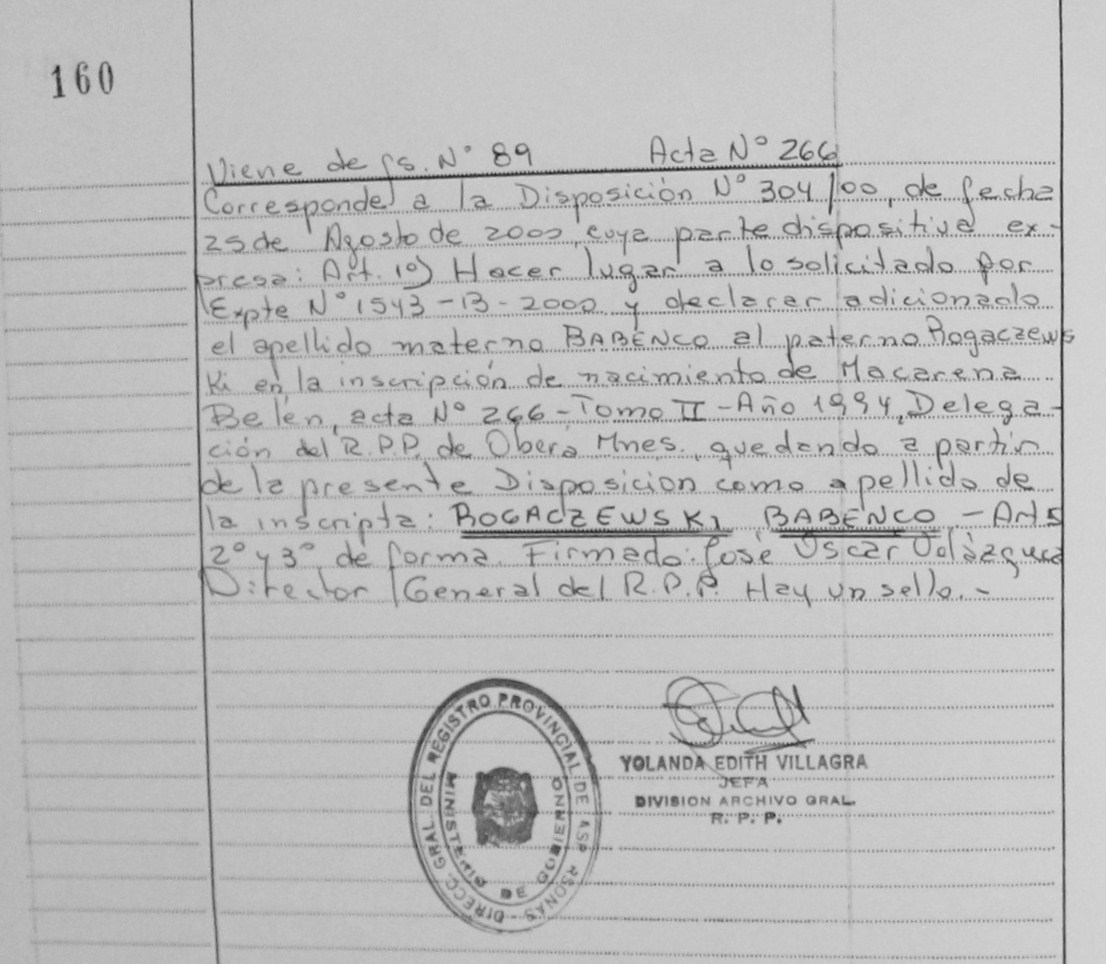 160
Viene de fs. Nº 89 Acta Nº 266
Corresponde a la Disposición Nº 304/00, de fecha
25 de Agosto de 2000, cuya parte dispositiva ex-
presa: Art. 1º) Hacer lugar a lo solicitado por
Expte Nº 1543-13-2000 y declarar adicionado
el apellido materno BABENCO al paterno Bogaczews
ki en la inscripción de nacimiento de Macarena
Belén, acta Nº 266-Tomo II-Año 1994, Delega-
ción del R.P.P. de Oberá Mnes., quedando a partir
de la presente Disposicion como apellido de
la inscripta: BOGACZEWSKI BABENCO.-Arts
2º y 3º de forma. Firmado: José Oscar
Director General del R.P.P. Hay un sello.-
DIRECC. GRAL. DEL REGISTRO PROVINCIAL DE
MINISTERIO DE GOBIERNO
YOLANDA EDITH VILLAGRA
JEFA
DIVISION ARCHIVO GRAL.
R. P. P.